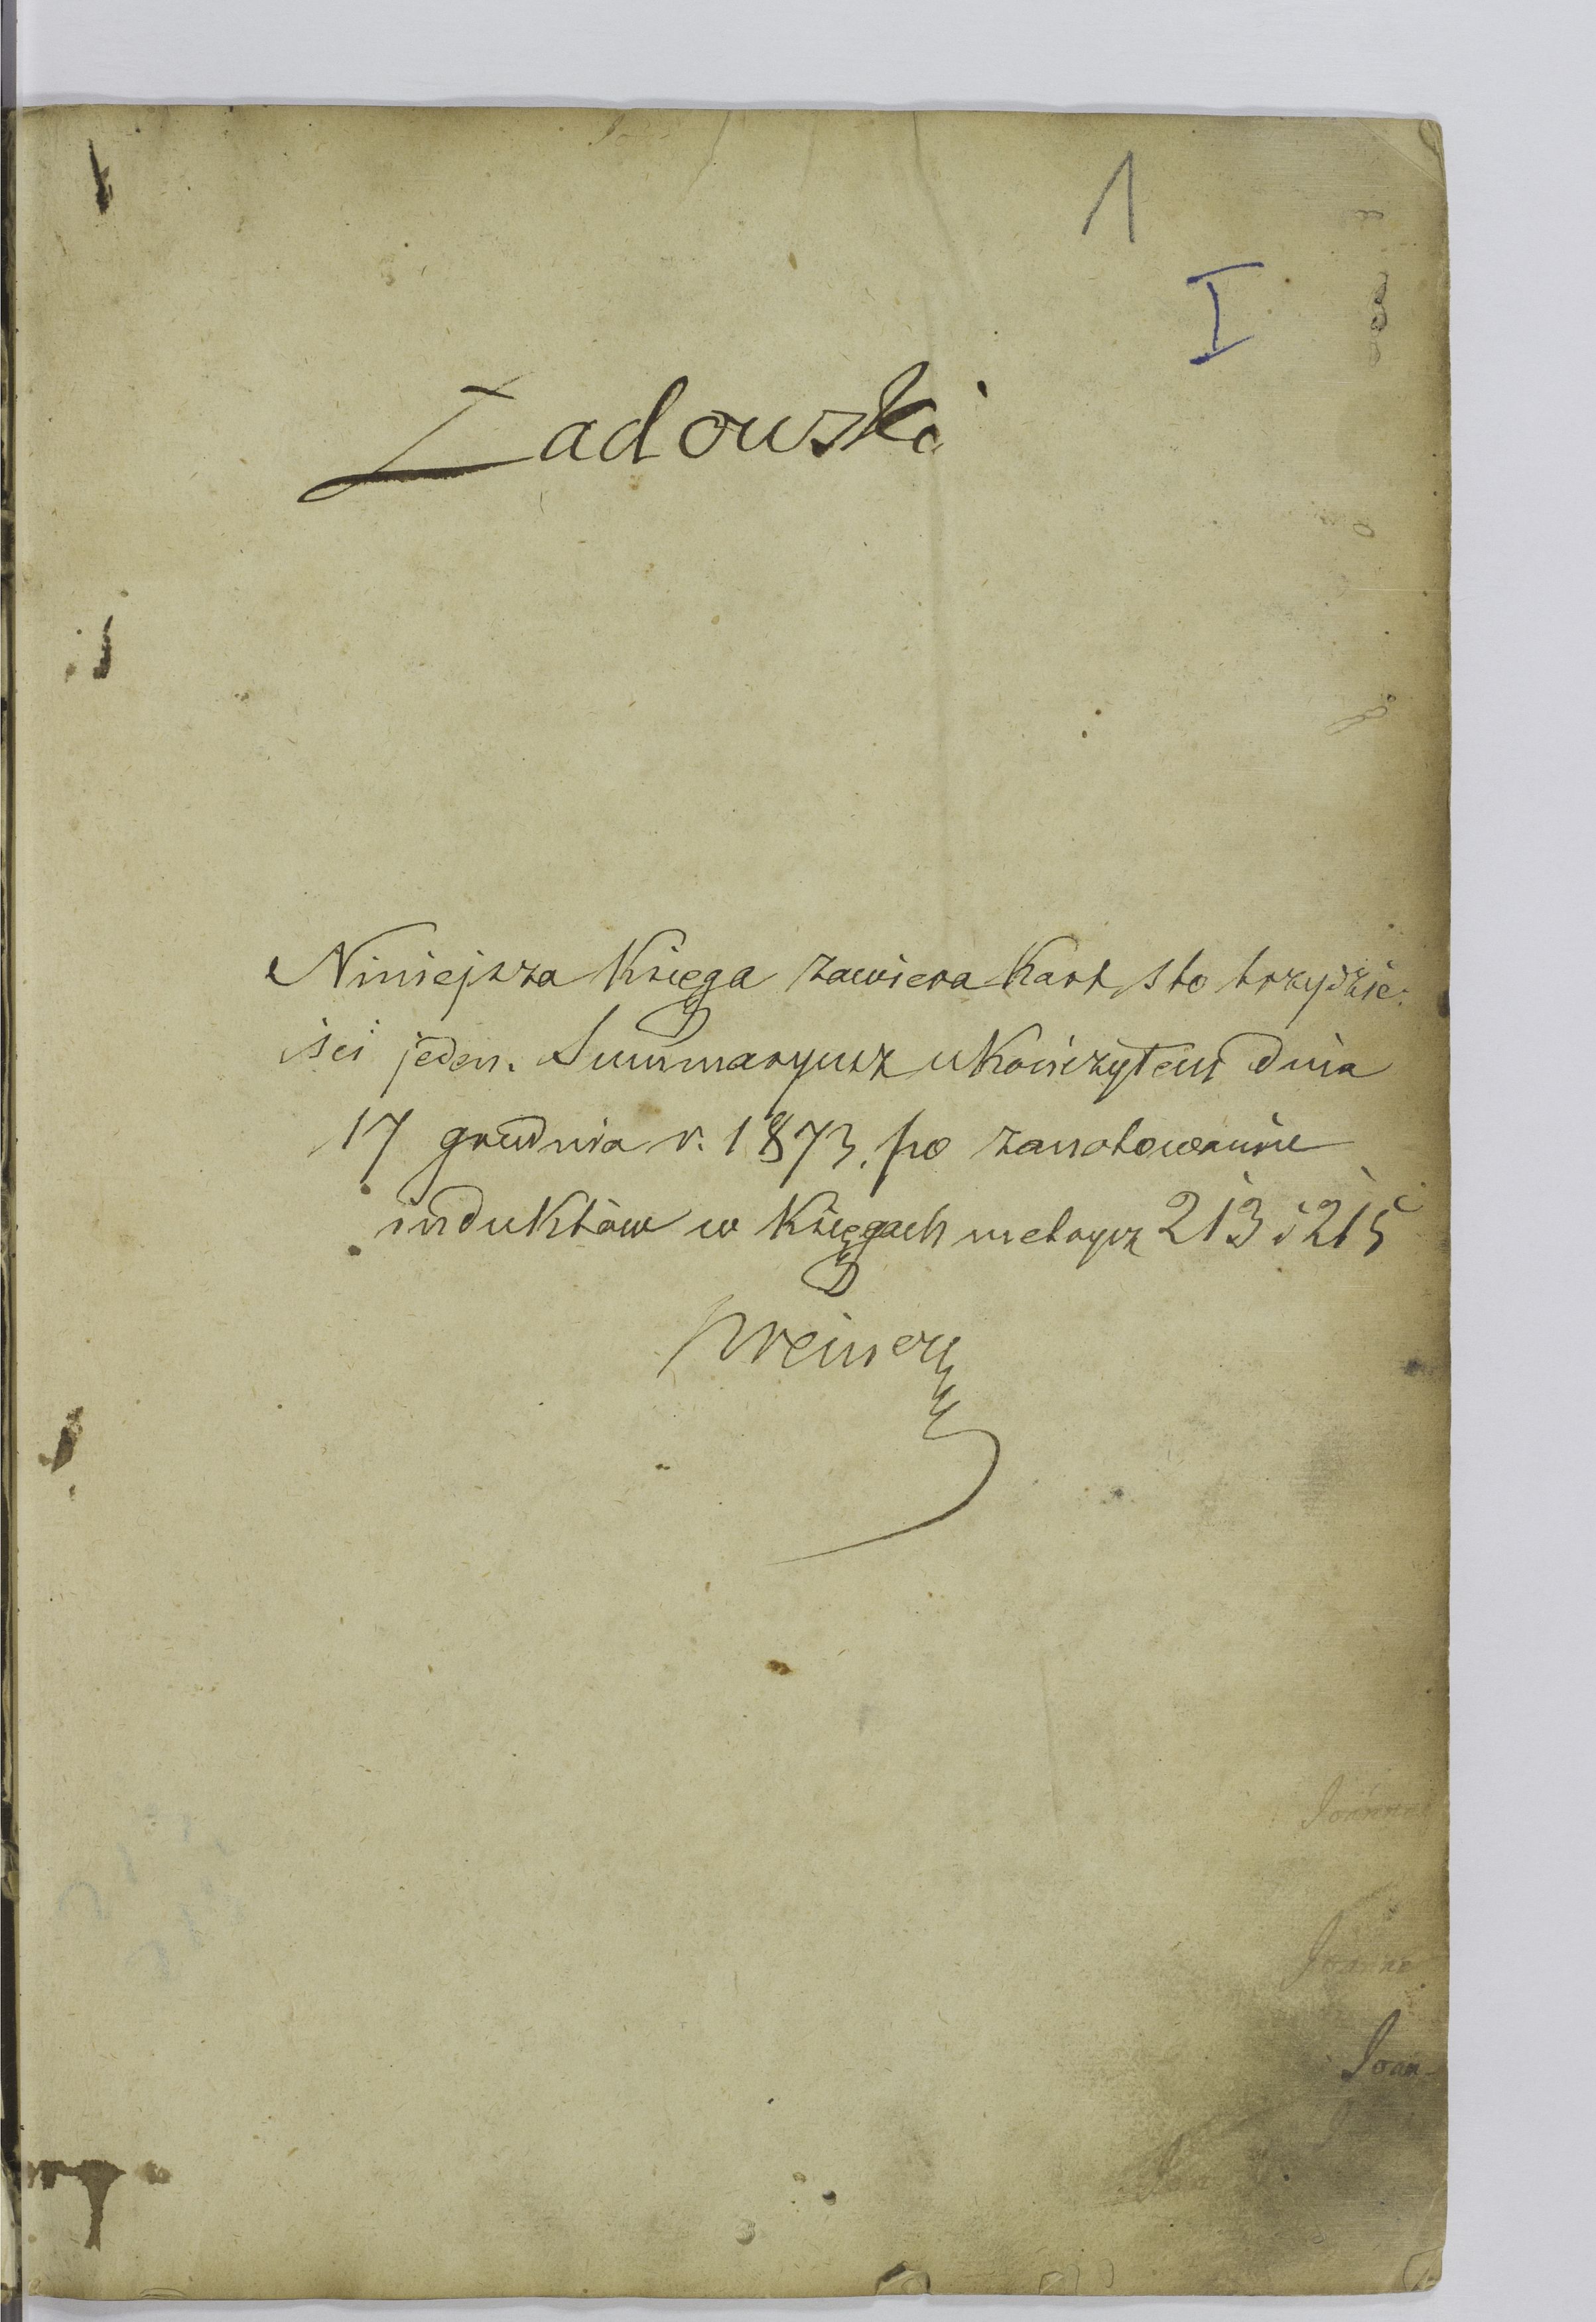 1
I
Ladowski
Niniejsza Księga zawiera Kart sto trzydzie-
ści jeden. Summaryusz ukończyłem dnia
17 grudnia r. 1873. po zanotowaniu
induktów w Księgach metrycz 213 i 215
Joanne
Joanne
Joan